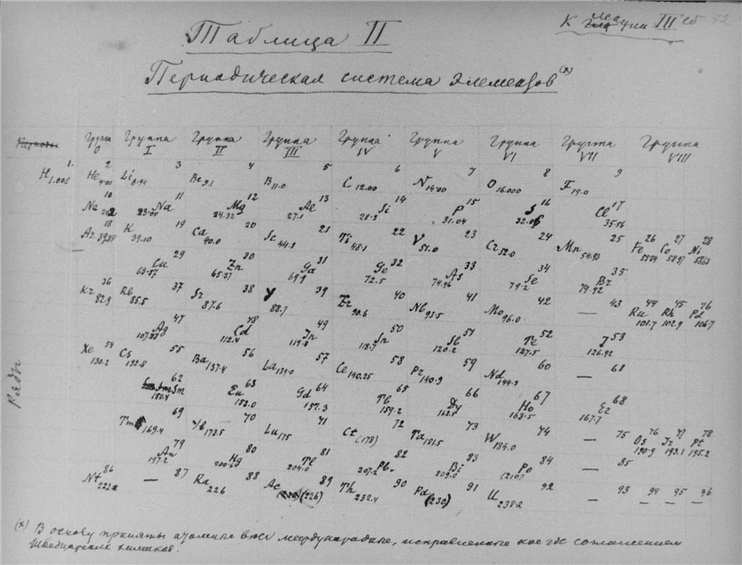 К лекции III
Таблица II
Периодическая система элементов (x)
Периоды Группа 0 Группа I Группа II Группа III Группа IV Группа V Группа VI Группа VII Группа VIII
H 1.008 1. He 2 Li 6.94 3 Be 9.1 4 B 11.0 5 C 12.00 6 N 14.00 7 O 16.000 8 F 19.0 9
Ne 10 Na 23.00 11 Mg 24.32 12 Al 27.1 13 Si 14 P 31.04 15 S 32.06 16 Cl 17
Ar 39.88 18 K 39.10 19 Ca 40.0 20 Sc 44.1 21 Ti 48.1 22 V 51.0 23 Cr 52.0 24 Mn 54.93 25 Fe 26 Co 58.97 27 Ni 28
Cu 63.57 29 Zn 65.37 30 Ga 69.9 31 Ge 72.5 32 As 74.96 33 Se 79.2 34 Br 79.92 35
Kr 82.9 36 Rb 85.5 37 Sr 87.6 38 Y 88.7 39 Zr 90.6 40 Nb 93.5 41 Mo 96.0 42 — 43 Ru 101.7 44 Rh 102.9 45 Pd 106.7 46
Ag 107.88 47 Cd 112.4 48 In 114.8 49 Sn 118.7 50 Sb 120.2 51 Te 127.5 52 J 126.92 53
Xe 130.2 54 Cs 132.8 55 Ba 137.4 56 La 139.0 57 Ce 140.25 58 Pr 140.9 59 Nd 144.3 60 — 61
Ряды
Sm 150.4 62 Eu 152.0 63 Gd 157.3 64 Tb 159.2 65 Dy 66 Ho 163.5 67 Er 167.7 68
Tm 169.4 69 Yb 173.5 70 Lu 175 71 Ct (178) 72 Ta 181.5 73 W 184.0 74 — 75 Os 190.9 76 Ir 193.1 77 Pt 195.2 78
Au 197.2 79 Hg 200.6 80 Tl 204.0 81 Pb 207.2 82 Bi 209.0 83 Po (210) 84 — 85
Nt 86 — 87 Ra 226 88 Ac (226) 89 Th 232.4 90 Pa (230) 91 U 238.2 92 — 93 — 94 — 95 — 96
(x) В основу приняты атомные веса международные, исправленные кое где соглашением
Швейцарских химиков.